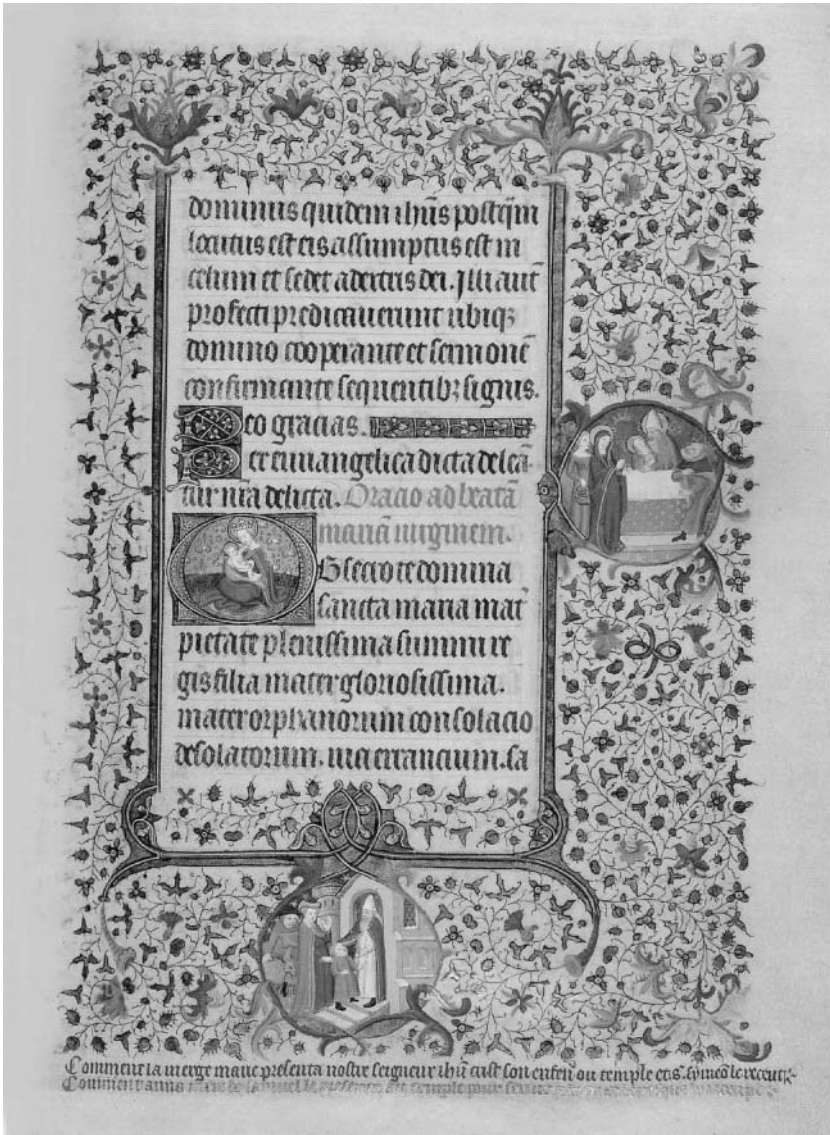 dominus quidem ihūs postq̄m
locutus est eis assumptus est in
celum et sedet a dextris dei. Illi aut̄
profecti predicauerunt ubiqꝫ
domino cooperante et sermonē
confirmante sequentibꝫ signis.
Deo gracias.
Per euuangelica dicta deleā
tur n̄ra delicta. Oracio ad beatā
mariā uirginem.
Obsecro te domina
sancta maria mat̄
pietate plenissima summi re
gis filia mater gloriosissima.
mater orphanorum consolacio
desolatorum. uia errancium. sa
Comment la vierge marie presenta nostre seigneur ihū crist son enfen ou temple et s. symeō le receut.
Comment anna mere de samuel le presenta au temple pour